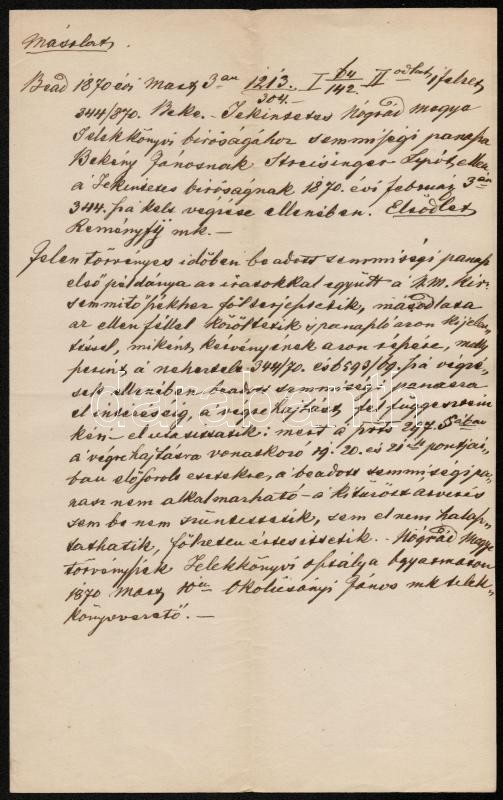 Másolat.
Bead 1870 évi Marz 3án 1213/304.- I 64/142. II od lat, felzet
344/870. Beke.- Tekintetes Nógrád megye
Telekkönyvi biróságához semmiségi panasza
Bekény Jánosnak Streisinger Lipót ellen
a Tekintetes biróságnak 1870. évi február 3án
344. sz.á kelt végzése ellenében. Elsődlet
Reményfy mk.-
Jelen törvényes időben beadott semmiségi panasz
első példánya az iratokkal együtt a N.M. kir.
semmitőszékhez fölterjesztetik, másodlata
az ellenféllel közöltetik s panaszló azon kijelen-
téssel, miként kérvényének azon része, mely
szerint a neheztelt 344/70. és 6593/69. sz.á végzé-
sek ellenében beadott semmiségi panaszra
el intézéséig, a végrehajtást felfüggeszteni
kéri - elutasittatik: mert a prts 297. §ában
a végrehajtásra vonatkozó 19. 20. és 21ik pontjai-
ban előforuló esetekre, a beadott semmiségi pa-
nasz nem alkalmazható - a kitűzött árverés
sem be nem szüntettetik, sem el nem halasz-
tathatik, fölzeten értesittetik.- Nógrád Megye
törvényszék Telekkönyvi osztálya Bgyarmaton
1870 Marz 10én Okolicsányi János mk telek-
könyvvezető.-
darabanth